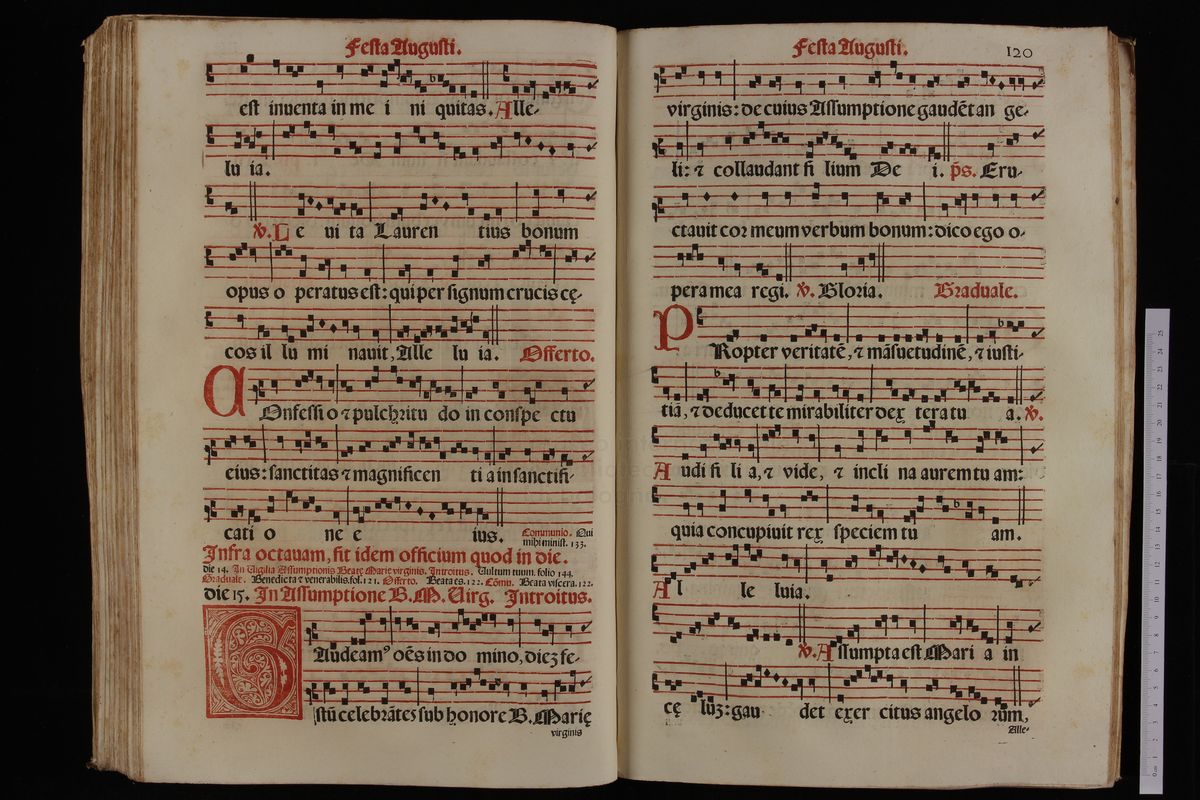 Festa Augusti.
est inventa in me i ni quitas. Alle-
lu ia.
℣. Le ui ta Lauren tius bonum
opus o peratus est: qui per signum crucis cę-
cos il lu mi nauit, Alle lu ia. Offerto.
COnfessi o ⁊ pulchritu do in conspe ctu
eius: sanctitas ⁊ magnificen ti a in sanctifi-
cati o ne e ius. Communio. Qui
mihi minist. 133.
Infra octauam, fit idem officium quod in die.
die 14. In Uigilia Assumptionis Beatę Marię virginis. Introitus. Vultum tuum. folio 144.
Graduale. Benedicta ⁊ venerabilis. fol. 121. Offerto. Beata es. 122. Cōmu. Beata viscera. 122.
die 15. In Assumptione B. M. Uirg. Introitus.
GAudeamꝰ oēs in do mino, diez fe-
stū celebrātes sub honore B. Marię
virginis
Festa Augusti.
120
virginis: de cuius Assumptione gaudēt an ge-
li: ⁊ collaudant fi lium De i. p̄s. Eru-
ctauit cor meum verbum bonum: dico ego o-
pera mea regi. ℣. Gloria. Graduale.
PRopter veritatē, ⁊ māsuetudinē, ⁊ iusti-
tiā, ⁊ deducet te mirabiliter dex tera tu a. ℣.
Audi fi li a, ⁊ vide, ⁊ incli na aurem tu am:
quia concupiuit rex speciem tu am.
Al le luia.
℣. Assumpta est Mari a in
cę luz: gau det exer citus angelo rum,
Alle-